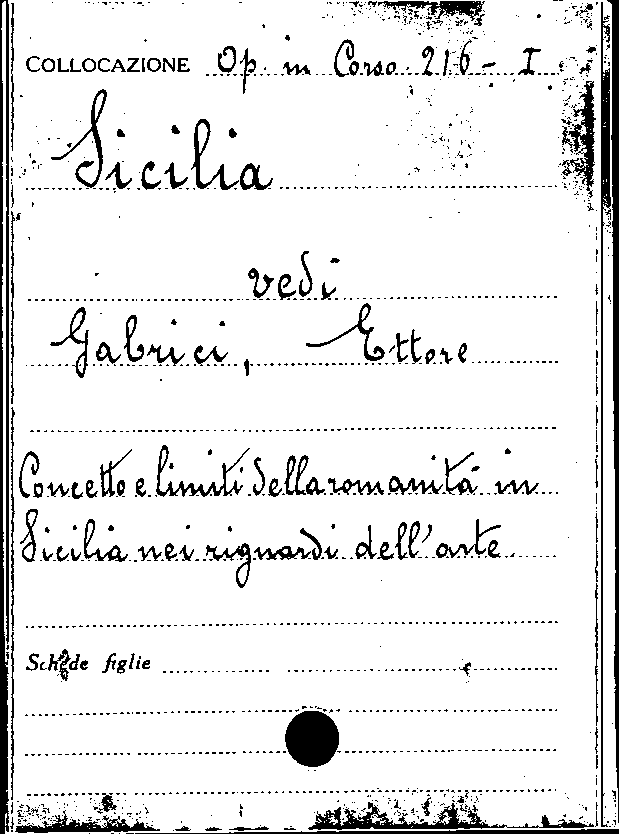 COLLOCAZIONE Op. in Corso 216 - I
Sicilia
vedi
Gabrici, Ettore
Concetto e limiti della romanità in
Sicilia nei riguardi dell'arte.
Schede figlie